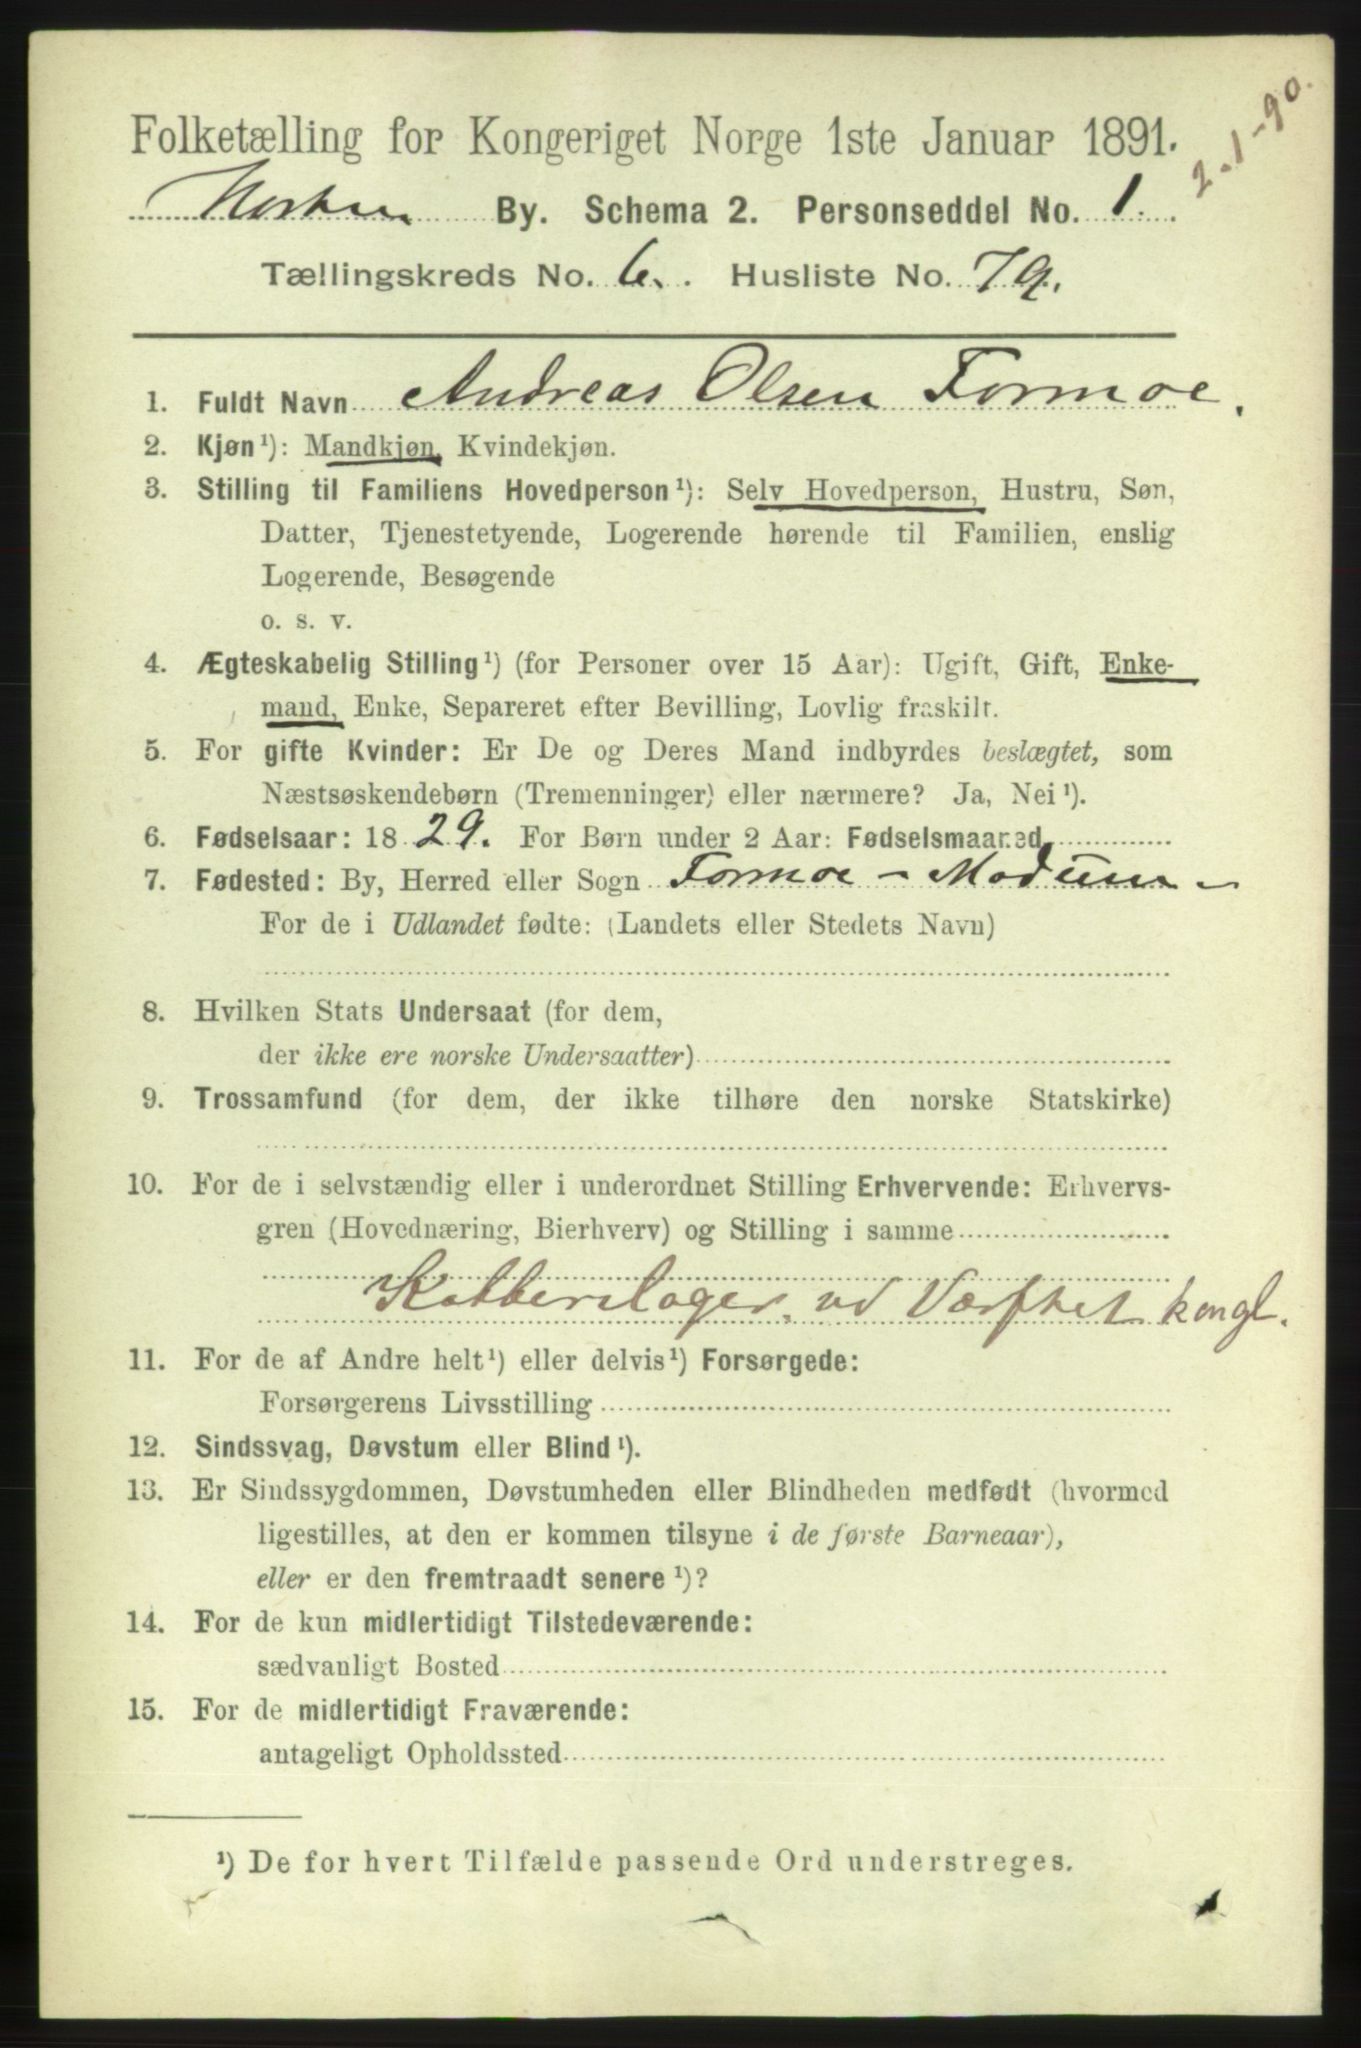 2-1-90.
Folketælling for Kongeriget Norge 1ste Januar 1891.
Horten By. Schema 2. Personseddel No. 1.
Tællingskreds No. 6. Husliste No. 79.
1. Fuldt Navn Andreas Olsen Formoe.
2. Kjøn¹): Mandkjøn, Kvindekjøn.
3. Stilling til Familiens Hovedperson¹): Selv Hovedperson, Hustru, Søn,
Datter, Tjenestetyende, Logerende hørende til Familien, enslig
Logerende, Besøgende
o. s. v.
4. Ægteskabelig Stilling¹) (for Personer over 15 Aar): Ugift, Gift, Enke-
mand, Enke, Separeret efter Bevilling, Lovlig fraskilt.
5. For gifte Kvinder: Er De og Deres Mand indbyrdes beslægtet, som
Næstsøskendebørn (Tremenninger) eller nærmere? Ja, Nei¹).
6. Fødselsaar: 1829. For Børn under 2 Aar: Fødselsmaaned
7. Fødested: By, Herred eller Sogn Formoe - Modum -
For de i Udlandet fødte: (Landets eller Stedets Navn)
8. Hvilken Stats Undersaat (for dem,
der ikke ere norske Undersaatter)
9. Trossamfund (for dem, der ikke tilhøre den norske Statskirke)
10. For de i selvstændig eller i underordnet Stilling Erhvervende: Erhvervs-
gren (Hovednæring, Bierhverv) og Stilling i samme
Kobberslager. vd Værftet kongl.
11. For de af Andre helt¹) eller delvis¹) Forsørgede:
Forsørgerens Livsstilling
12. Sindssvag, Døvstum eller Blind¹).
13. Er Sindssygdommen, Døvstumheden eller Blindheden medfødt (hvormed
ligestilles, at den er kommen tilsyne i de første Barneaar),
eller er den fremtraadt senere¹)?
14. For de kun midlertidigt Tilstedeværende:
sædvanligt Bosted
15. For de midlertidigt Fraværende:
antageligt Opholdssted
¹) De for hvert Tilfælde passende Ord understreges.